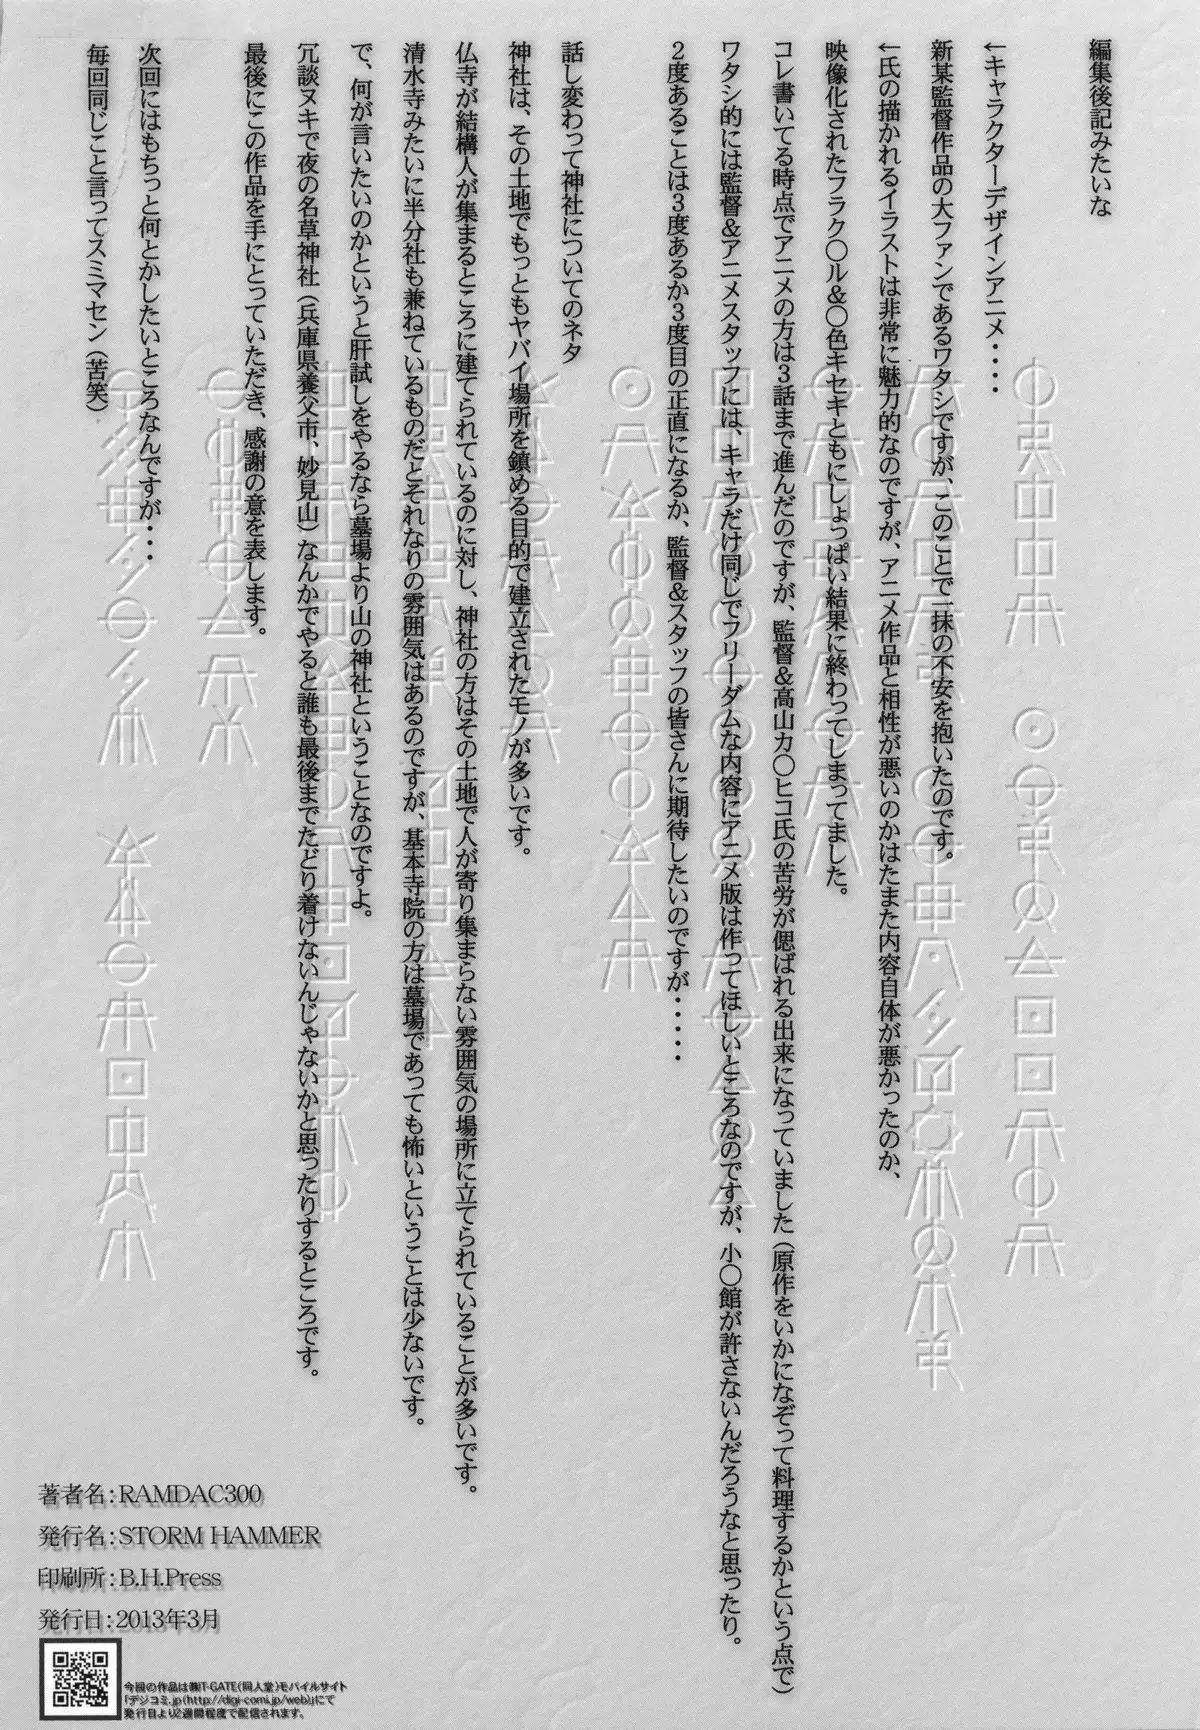 編集後記みたいな
←キャラクターデザインアニメ・・・・
新某監督作品の大ファンであるワタシですが、このことで一抹の不安を抱いたのです。
←氏の描かれるイラストは非常に魅力的なのですが、アニメ作品と相性が悪いのかはたまた内容自体が悪かったのか、
映像化されたフラク〇ル&〇色キセキともにしょっぱい結果に終わってしまってました。
コレ書いてる時点でアニメの方は３話まで進んだのですが、監督&高山カ〇ヒコ氏の苦労が偲ばれる出来になっていました（原作をいかになぞって料理するかという点で）
ワタシ的には監督&アニメスタッフには、キャラだけ同じでフリーダムな内容にアニメ版は作ってほしいところなのですが、小〇館が許さないんだろうなと思ったり。
２度あることは３度あるか３度目の正直になるか、監督&スタッフの皆さんに期待したいのですが・・・・・
話し変わって神社についてのネタ
神社は、その土地でもっともヤバイ場所を鎮める目的で建立されたモノが多いです。
仏寺が結構人が集まるところに建てられているのに対し、神社の方はその土地で人が寄り集まらない雰囲気の場所に立てられていることが多いです。
清水寺みたいに半分社も兼ねているものだとそれなりの雰囲気はあるのですが、基本寺院の方は墓場であっても怖いということは少ないです。
で、何が言いたいのかというと肝試しをやるなら墓場より山の神社ということなのですよ。
冗談ヌキで夜の名草神社（兵庫県養父市、妙見山）なんかでやると誰も最後までたどり着けないんじゃないかと思ったりするところです。
最後にこの作品を手にとっていただき、感謝の意を表します。
次回にはもちっと何とかしたいところなんですが・・・
毎回同じこと言ってスミマセン（苦笑）
著者名：RAMDAC300
発行名：STORM HAMMER
印刷所：B.H.Press
発行日：2013年3月
今回の作品は㈱T-GATE（同人堂）モバイルサイト
「デジコミ.jp（http://digi-comi.jp/web）」にて
発行日より2週間程度で配信されます。